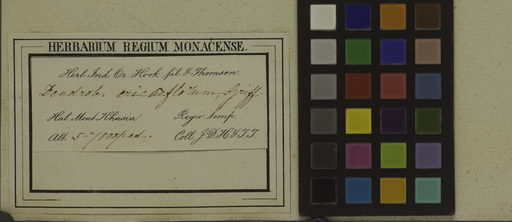 HERBARIUM REGIUM MONACENSE.
Herb. Ind. Or. Hook. fil. & Thomson.
Dendrob. Griff.
Hab. Mont. Khasia Regio. temp.
Alt. ped. Coll. J. D. H. & T. T.